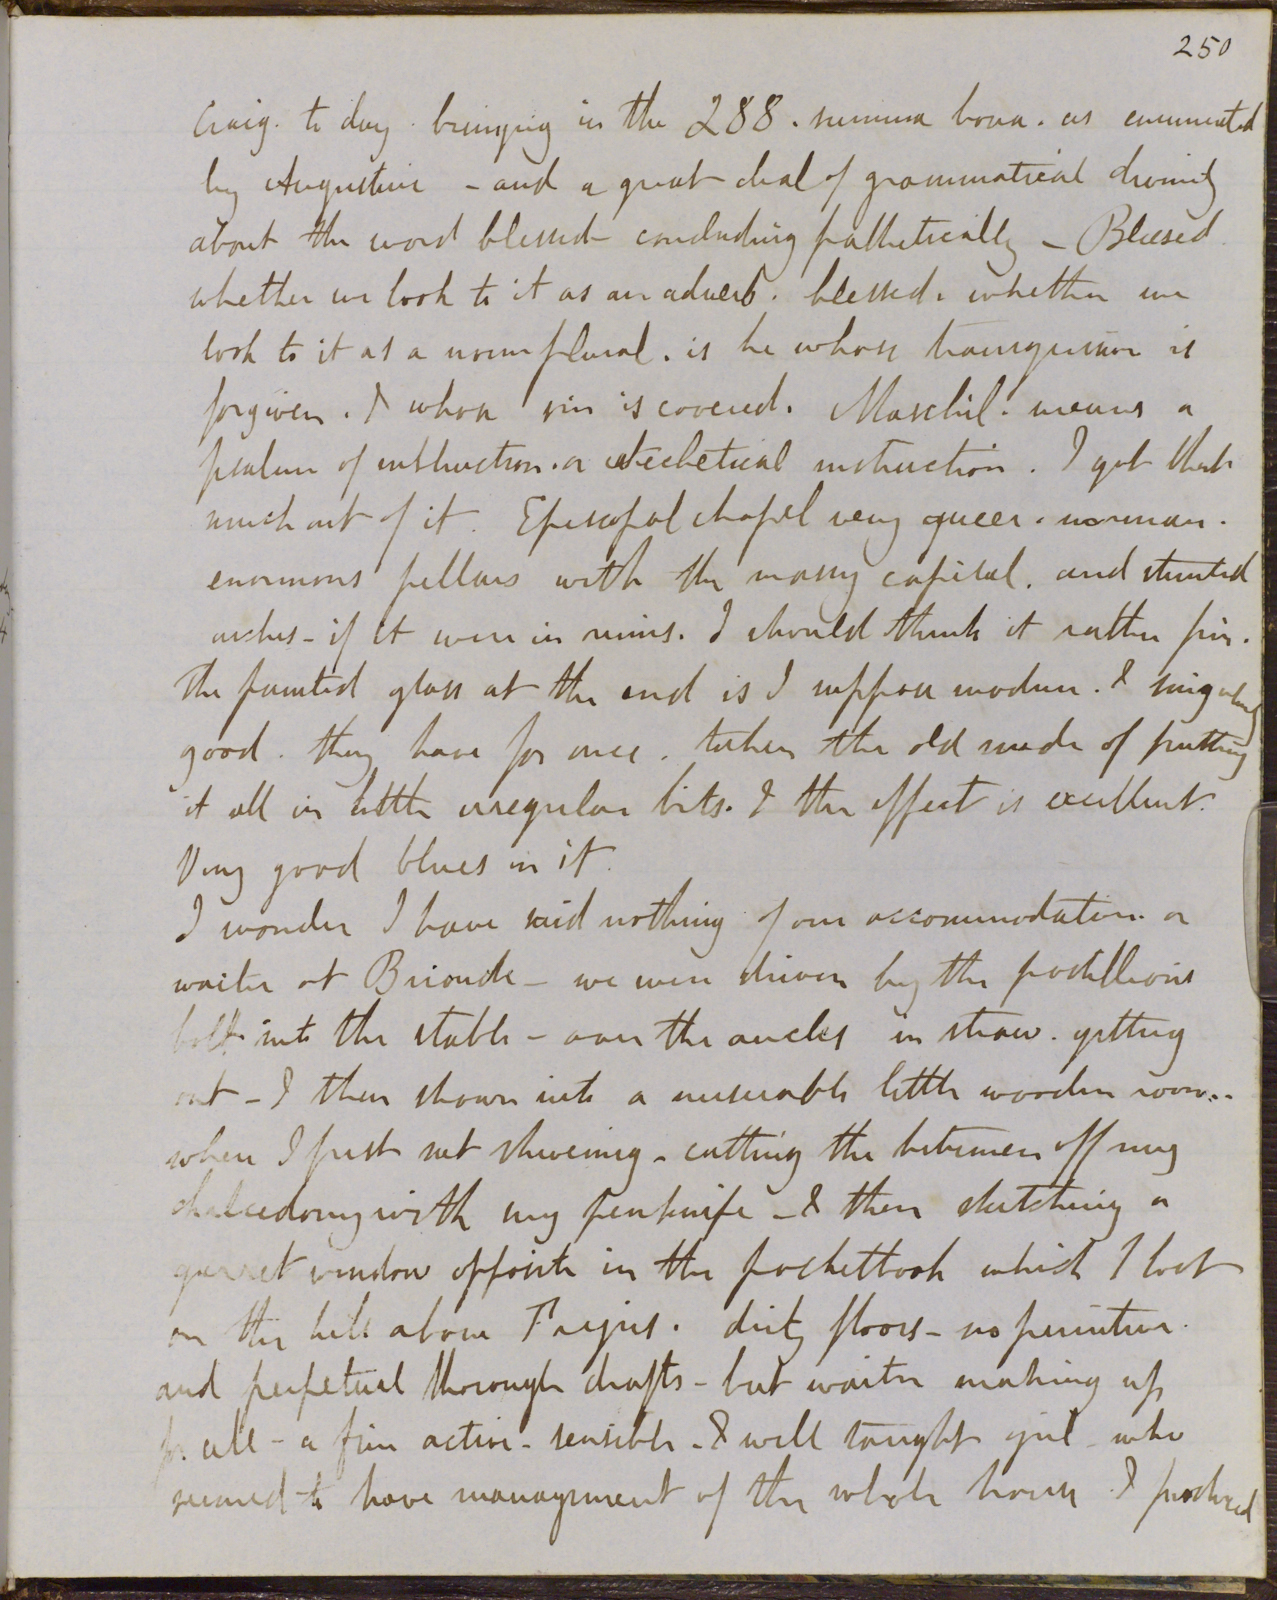 250
Craig. to day. bringing in the 288. summa bona. as enumerated
by Augustine - and a great deal of grammatical divinity
about the word blessed - concluding pathetically - Blessed.
whether we look to it as an adverb. blessed. whether we
look to it as a noun plural. is he whose transgression is
forgiven. & whose sin is covered. Maschil. means a
psalm of instruction. or catechetical instruction. I got that
much out of it. Episcopal chapel very queer. norman.
enormous pillars with the massy capital. and stunted
arches - if it were in ruins. I should think it rather fine.
The painted glass at the end is I suppose modern. & singularly
good. they have for once. taken the old mode of putting
it all in little irregular bits. & the effect is excellent.
Very good blues in it.
I wonder I have said nothing of our accommodation. or
waiter at Brioude - we were driven by the postillions
bolt into the stable - over the ancles in straw. getting
out - & then shown into a miserable little wooden room..
where I first sat shivering - cutting the bitumen off my
chalcedony with my penknife - & then sketching a
garret window opposite in the pocketbook which I lost
on the hill above Frejus. dirty floors - no furniture.
and perpetual thorough drafts - but waiter making up
for all - a fine active - sensible - & well taught girl - who
seemed to have management of the whole house & produced